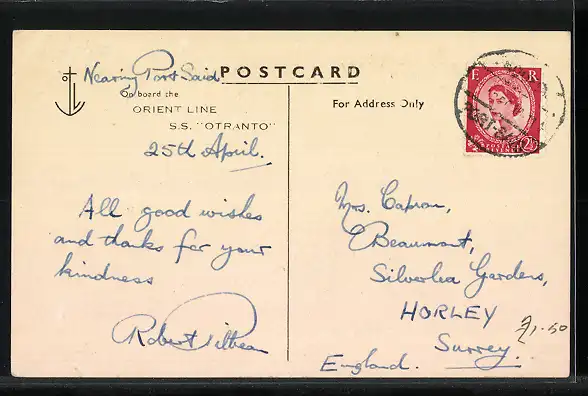 Nearing Port Said
POSTCARD
On board the
ORIENT LINE
S.S. "OTRANTO"
25th April.
All good wishes
and thanks for your
kindness
Robert Pilbeam
For Address Only
E R
POSTAGE
REVENUE
2½
PORT-SAID
Mrs. Capron,
Beaumont,
Silverlea Gardens,
HORLEY
Surrey.
England.
£1-50